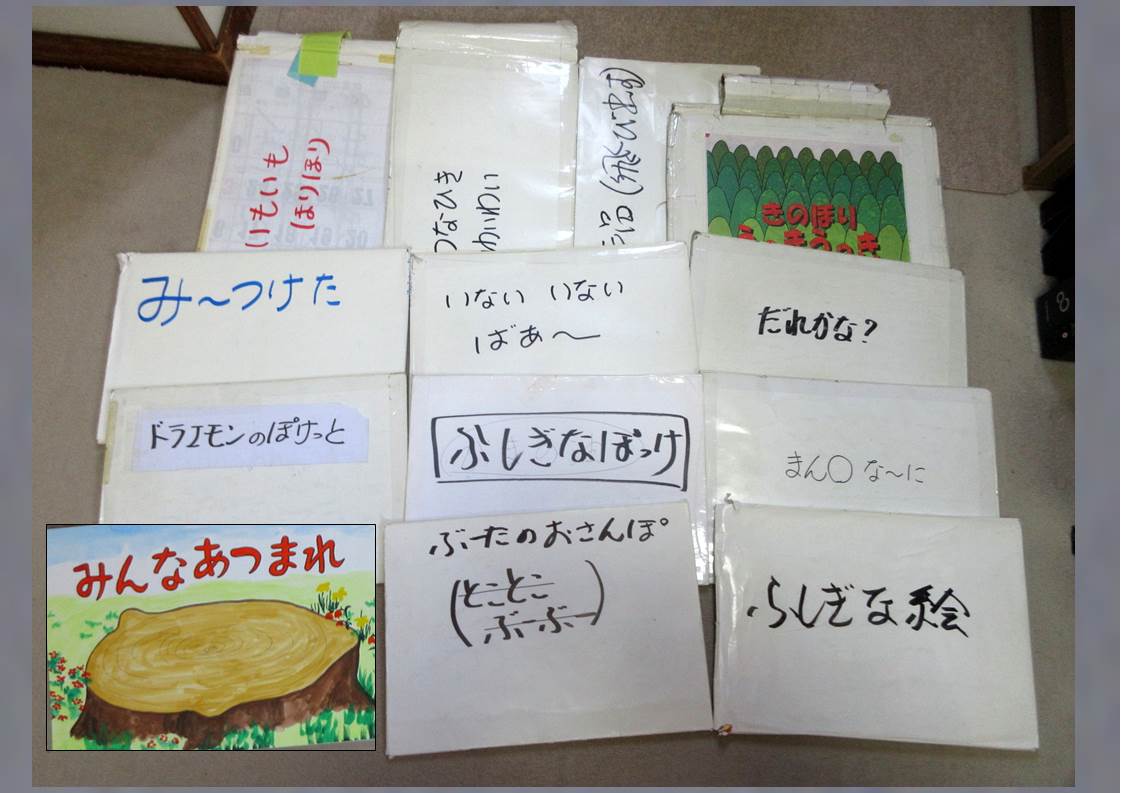 いもいも
ほりほり
つなひき
わいわい
きのぼり
うっきうっき
み〜つけた
いない いない
ばあ〜
だれかな?
ドラエモンのぽけっと
ふしぎなぽっけ
まん〇 な〜に
みんなあつまれ
ぶーたのおさんぽ
(とことこ
ぶーぶー)
ふしぎな絵
18